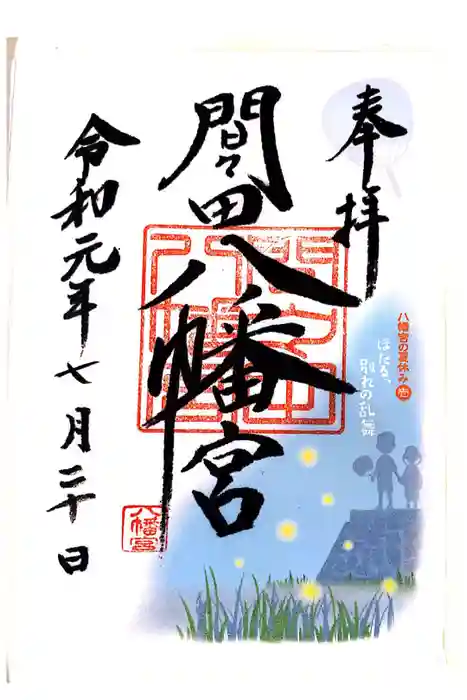 奉拝
間々田八幡宮
令和元年七月二十日
八幡宮の夏休み 壱
ほたる、
別れの乱舞
八幡宮